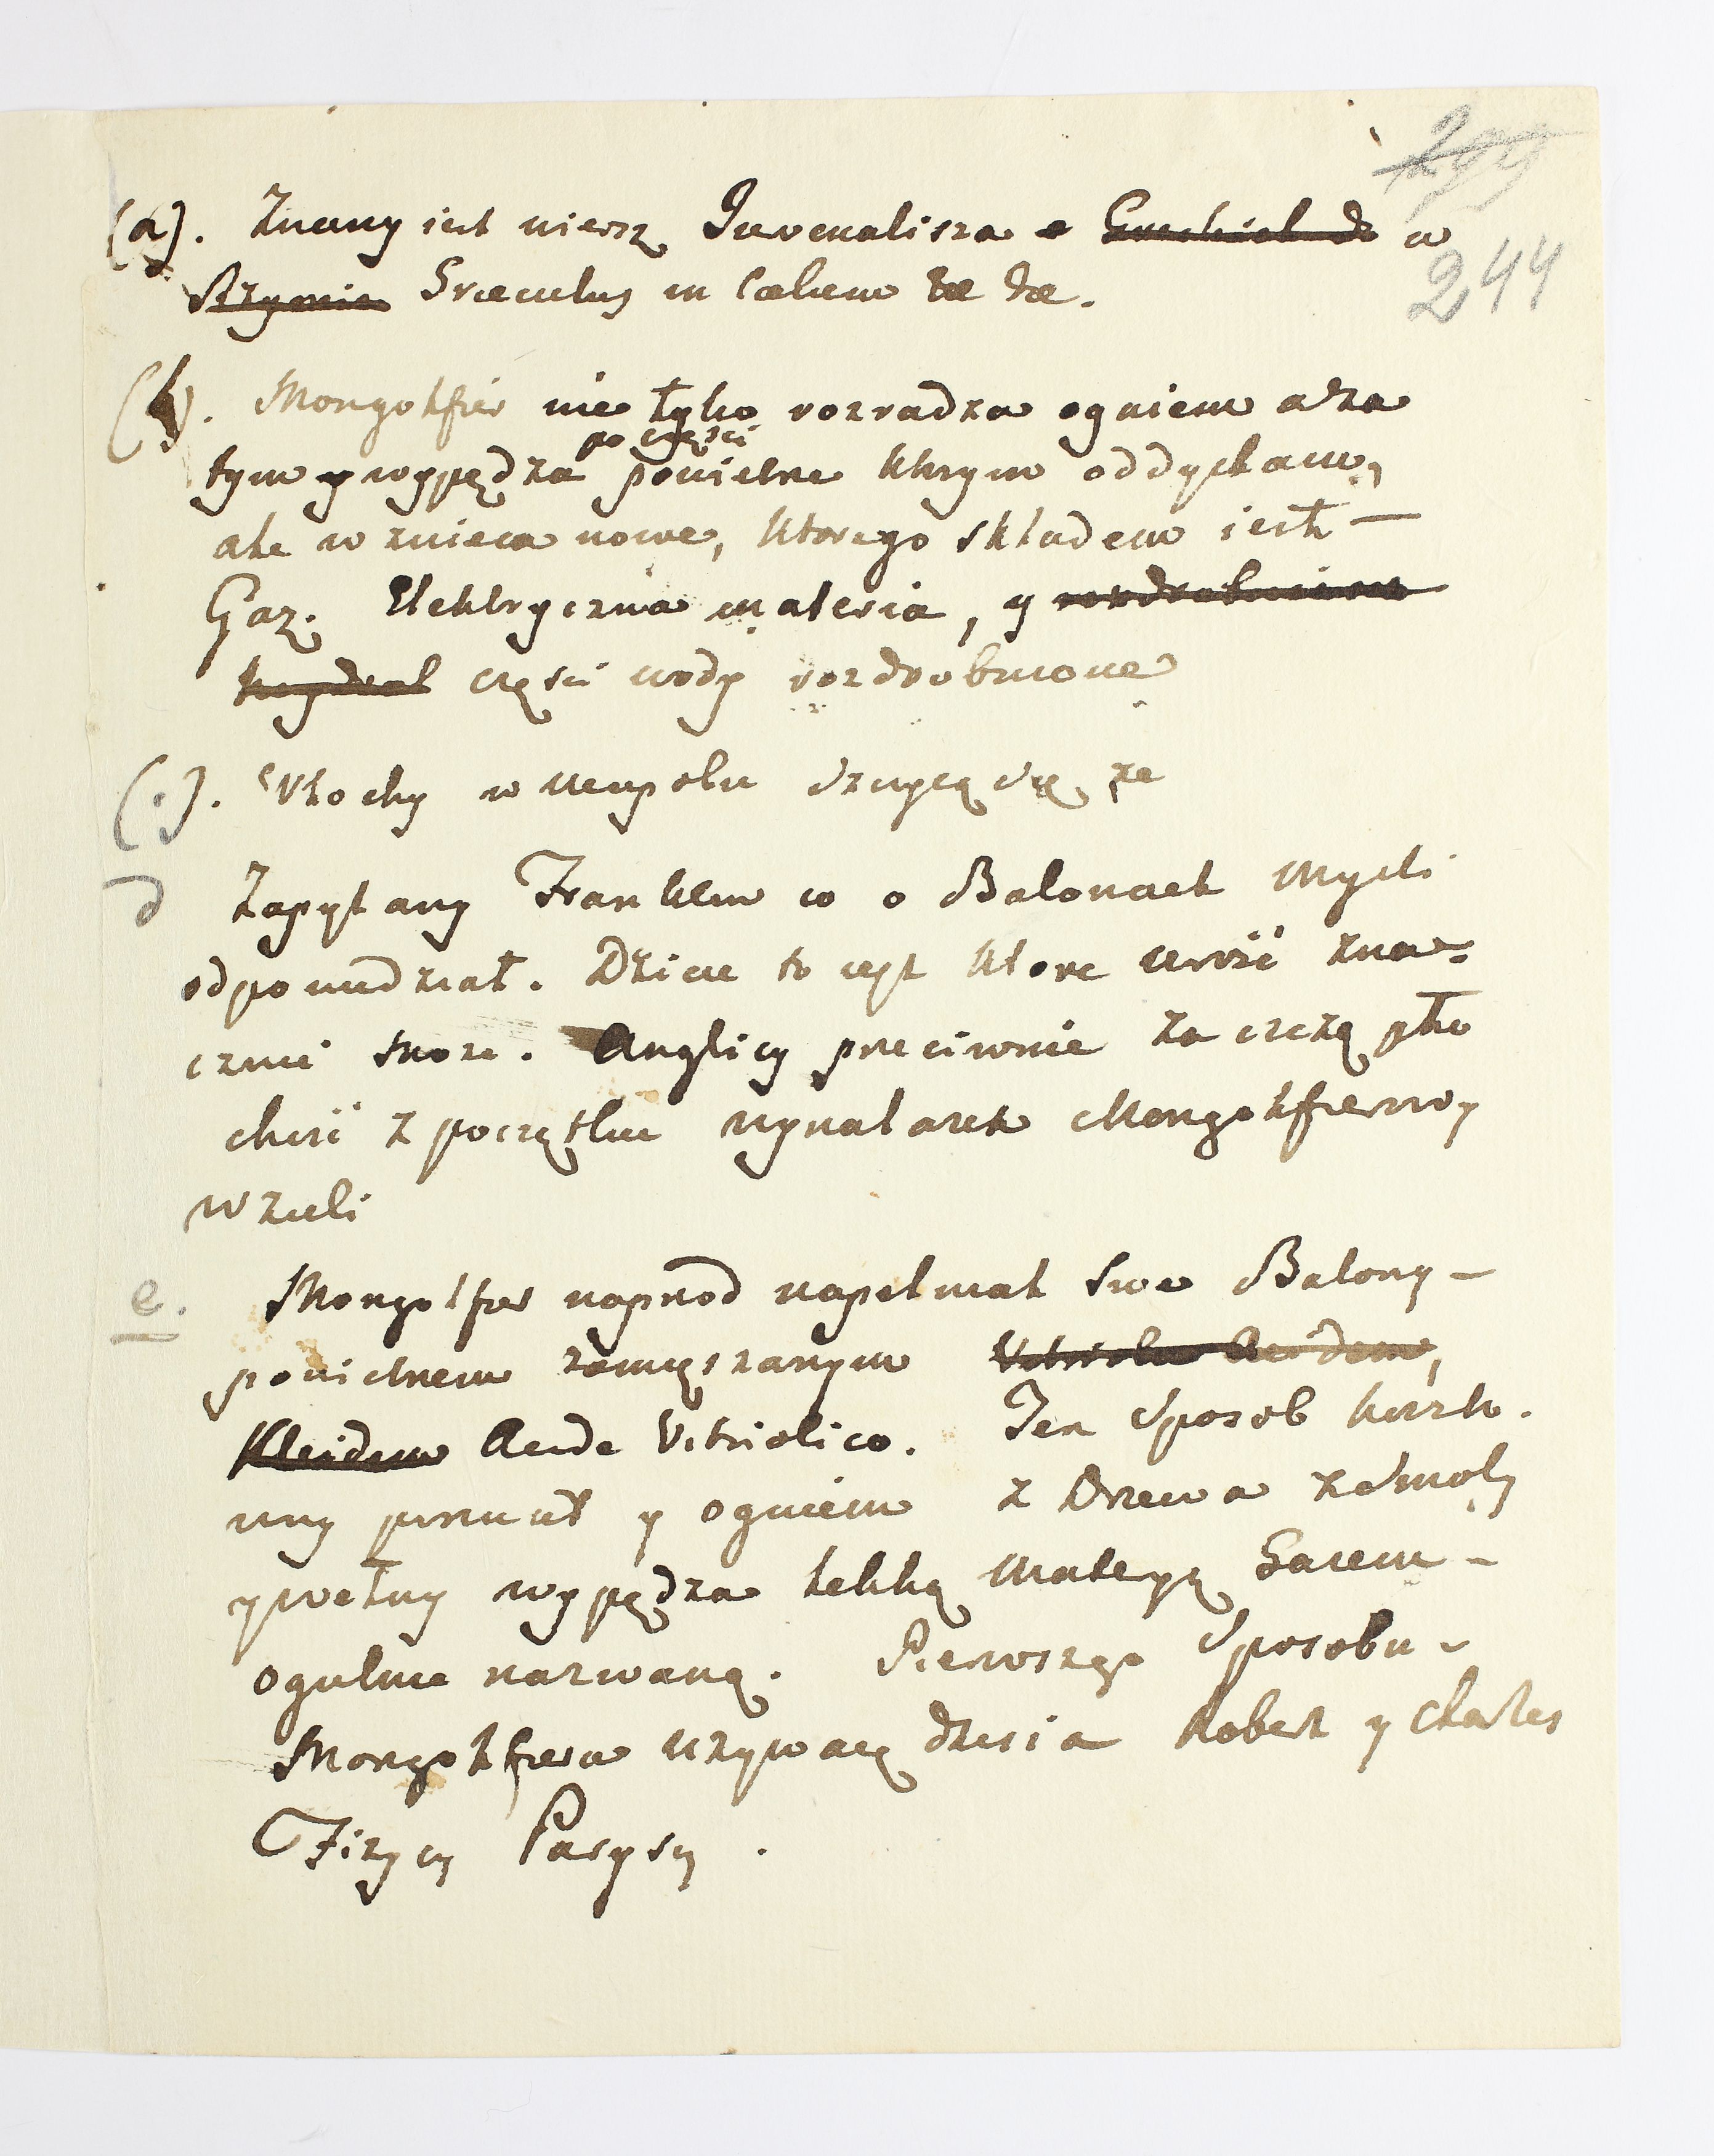 299
244
(a). Znany iest wiersz Juvenalisza o Greckich w
Rzymie Græculus in Cœlum &c &c.
(b). Mongolfier nie tylko rozradza ogniem a za
po części
tym wypędza powietrze ktrym oddycham,
ale wznieca nowe, ktorego składem iest —
Gaz. Elektryczna materia, y rozdrobnione
części wody rozdrobnione
(.). Włochy w Neapolu szczycą się że
d Zapytany Franklin co o Balonach mysli
odpowiedział. Dzicie to iest ktore urość zna-
cznie może. Anglicy przeciwnie za czczą pło
chość z początku wynalazek Mongolfierowy
wzieli
e. Mongolfier naprzod napełniał swe Balony —
powietrzem zamięszanym Vitriolu Acidem,
Kleidem Acido Vitriolico. Ten sposob koszto.
wny porzucił y ogniem z Drzewa z smoły
y wełny wypędza lekką materyą Gazem —
ogulnie nazwaną. Pierwszego sposobu —
Mongolfiera używaią dzisia Robert y Charles
Fizycy Paryscy.